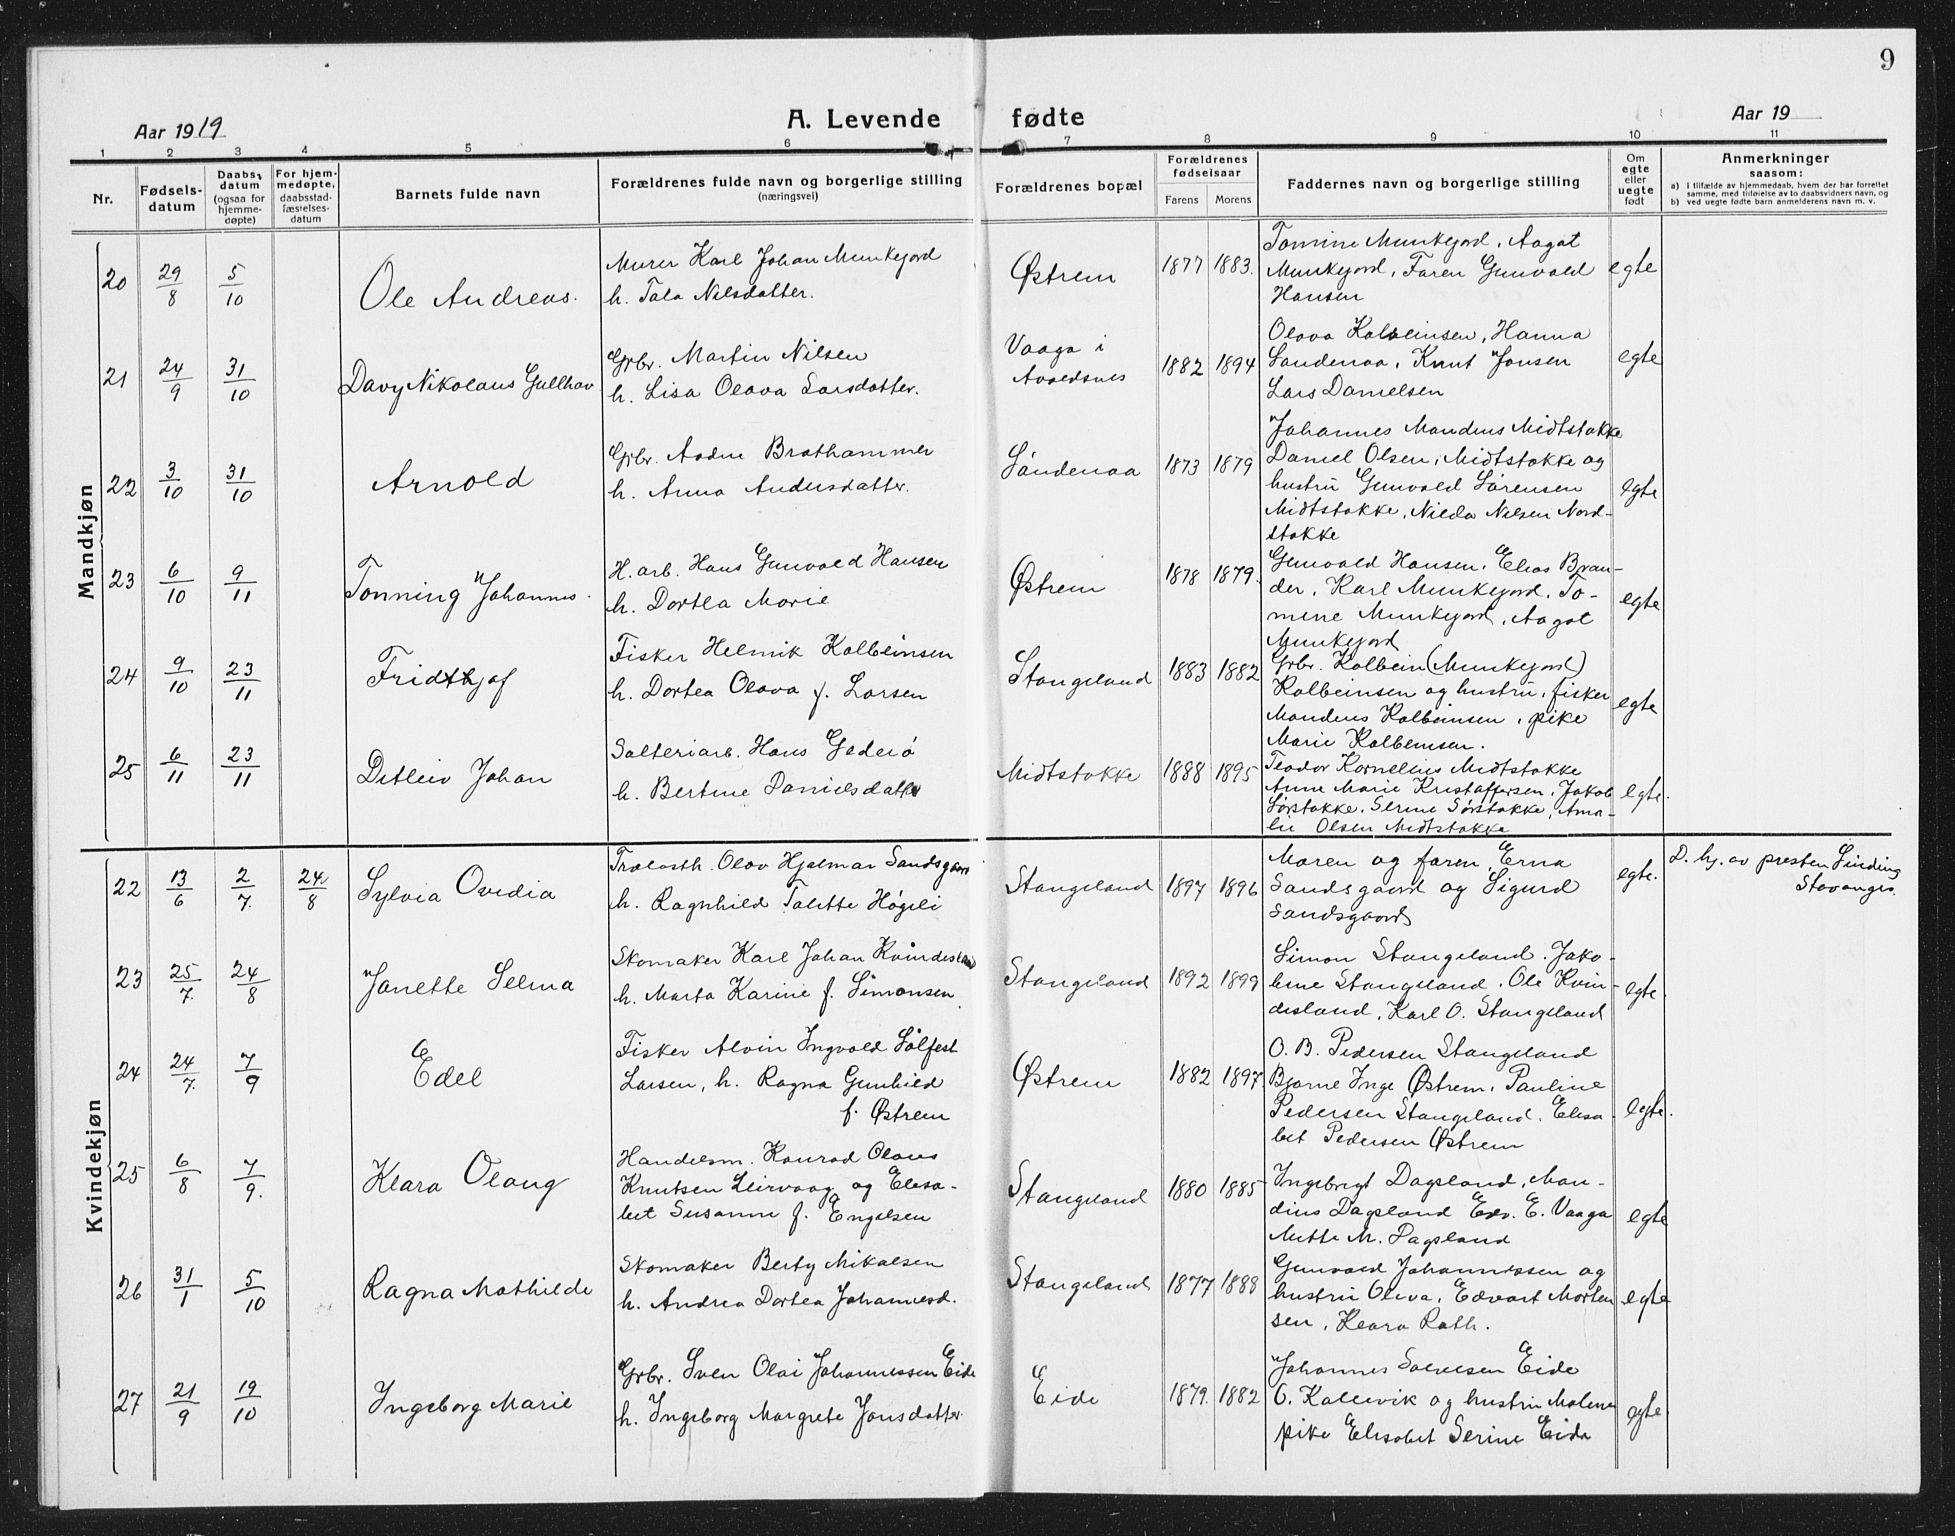 9
Aar 1919
A. Levende fødte
Aar 19
1 2 3 4 5 6 7 8 9 10 11
Nr.
Fødsels-
datum
Daabs-
datum
(ogsaa for
hjemme-
døpte)
For hjem-
medøpte,
daabsstad-
fæstelses-
datum
Barnets fulde navn
Forældrenes fulde navn og borgerlige stilling
(næringsvei)
Forældrenes bopæl
Forældrenes
fødselsaar
Farens Morens
Faddernes navn og borgerlige stilling
Om
egte
eller
uegte
født
Anmerkninger
saasom:
a) i tilfælde av hjemmedaab, hvem der har forrettet
samme, med tilføielse av to daabsvidners navn, og
b) ved uegte fødte barn anmelderens navn m. v.
Mandkjøn
20 29/8 5/10 Ole Andreas.
Murer Karl Johan Munkejord
h. Tala Nilsdatter.
Østrem 1877 1883.
Tomine Munkejord, Aagot
Munkejord, Faren Gunvald
Hansen
egte
21 24/9 31/10 Davy Nikolaus Gullhav
Grbr. Martin Nilsen
h. Lisa Olava Larsdatter.
Vaaga i
Avaldsnes
1882 1894
Olava Kolbeinsen, Hanna
Sandenaa, Knut Jonsen
Lars Danielsen
egte
22 3/10 31/10 Arnold
Grbr. Aadne Brathammer
h. Anna Andersdatter.
Sandenaa 1873 1879
Johannes Mandius Midtstokke
Daniel Olsen, Midtstokke og
hustru Gunvald Sørensen
Midtstokke, Nilda Nilsen Nord-
stokke
egte
23 6/10 9/11 Tonning Johannes.
H. arb. Hans Gunvald Hansen
h. Dortea Marie
Østrem 1878 1879.
Gunvald Hansen, Elias Bran-
der, Karl Munkejord, To-
mine Munkejord, Aagot
Munkejord
egte
24 9/10 23/11 Fridthjof
Fisker Helmik Kolbeinsen
h. Dortea Olava f. Larsen
Stangeland 1883 1882
Grbr. Kolbein (Munkejord)
Kolbeinsen og hustru, fisker
Mandius Kolbeinsen, pike
Marie Kolbeinsen.
egte
25 6/11 23/11 Detleiv Johan
Salteriarb. Hans Gederø
h. Bertine Danielsdatter
Midtstokke 1888 1895
Teodor Kornelius Midtstokke
Anne Marie Kristoffersen, Jakob
Sørstokke, Serine Sørstokke, Ama-
lie Olsen Midtstokke
egte.
Kvindekjøn
22 13/6 2/7. 24/8 Sylvia Ovidia
Trælasth. Olav Hjalmar Sandsgaard
h. Ragnhild Talette Høgeli
Stangeland 1897 1896
Moren og faren, Erna
Sandsgaard og Sigurd
Sandsgaard
egte.
D. hj. av presten Sinding
Stavanger.
23 25/7. 24/8 Janette Selma
Skomaker Karl Johan Kvindesland
h. Marta Karine f. Simonsen.
Stangeland 1892 1899
Simon Stangeland. Jako-
bine Stangeland, Ole Kvin-
desland, Karl O. Stangeland
egte.
24 24/7. 7/9 Edel
Fisker Alvin Ingvald Solfest
Larsen, h. Ragna Gunhild
f. Østrem
Østrem 1882 1897.
O. B. Pedersen Stangeland
Bjarne Inge Østrem, Pauline
Pedersen Stangeland. Elisa-
bet Pedersen Østrem
egte.
25 6/8 7/9. Klara Olaug
Handelsm. Konrad Olaus
Knutsen Leirvaag og Elisa-
bet Susanne f. Engelsen
Stangeland 1880 1885
Ingebrigt Dagsland, Man-
dius Dagsland Edv. E. Vaaga
Mette M. Dagsland
egte
26 31/1 5/10 Ragna Mathilde
Skomaker Berty Mikalsen
h. Andrea Dortea Johannesd.
Stangeland 1877 1888
Gunvald Johannessen og
hustru Oliva, Edvart Morten
sen, Klara Rath.
egte
27 21/9 19/10 Ingeborg Marie
Grbr. Sven Olai Johannessen Eide
h. Ingeborg Margrete Jonsdatter.
Eide 1879. 1882
Johannes Salvesen Eide
O. Kallevik og hustru Malene
pike Elisabet Serine Eide
egte.